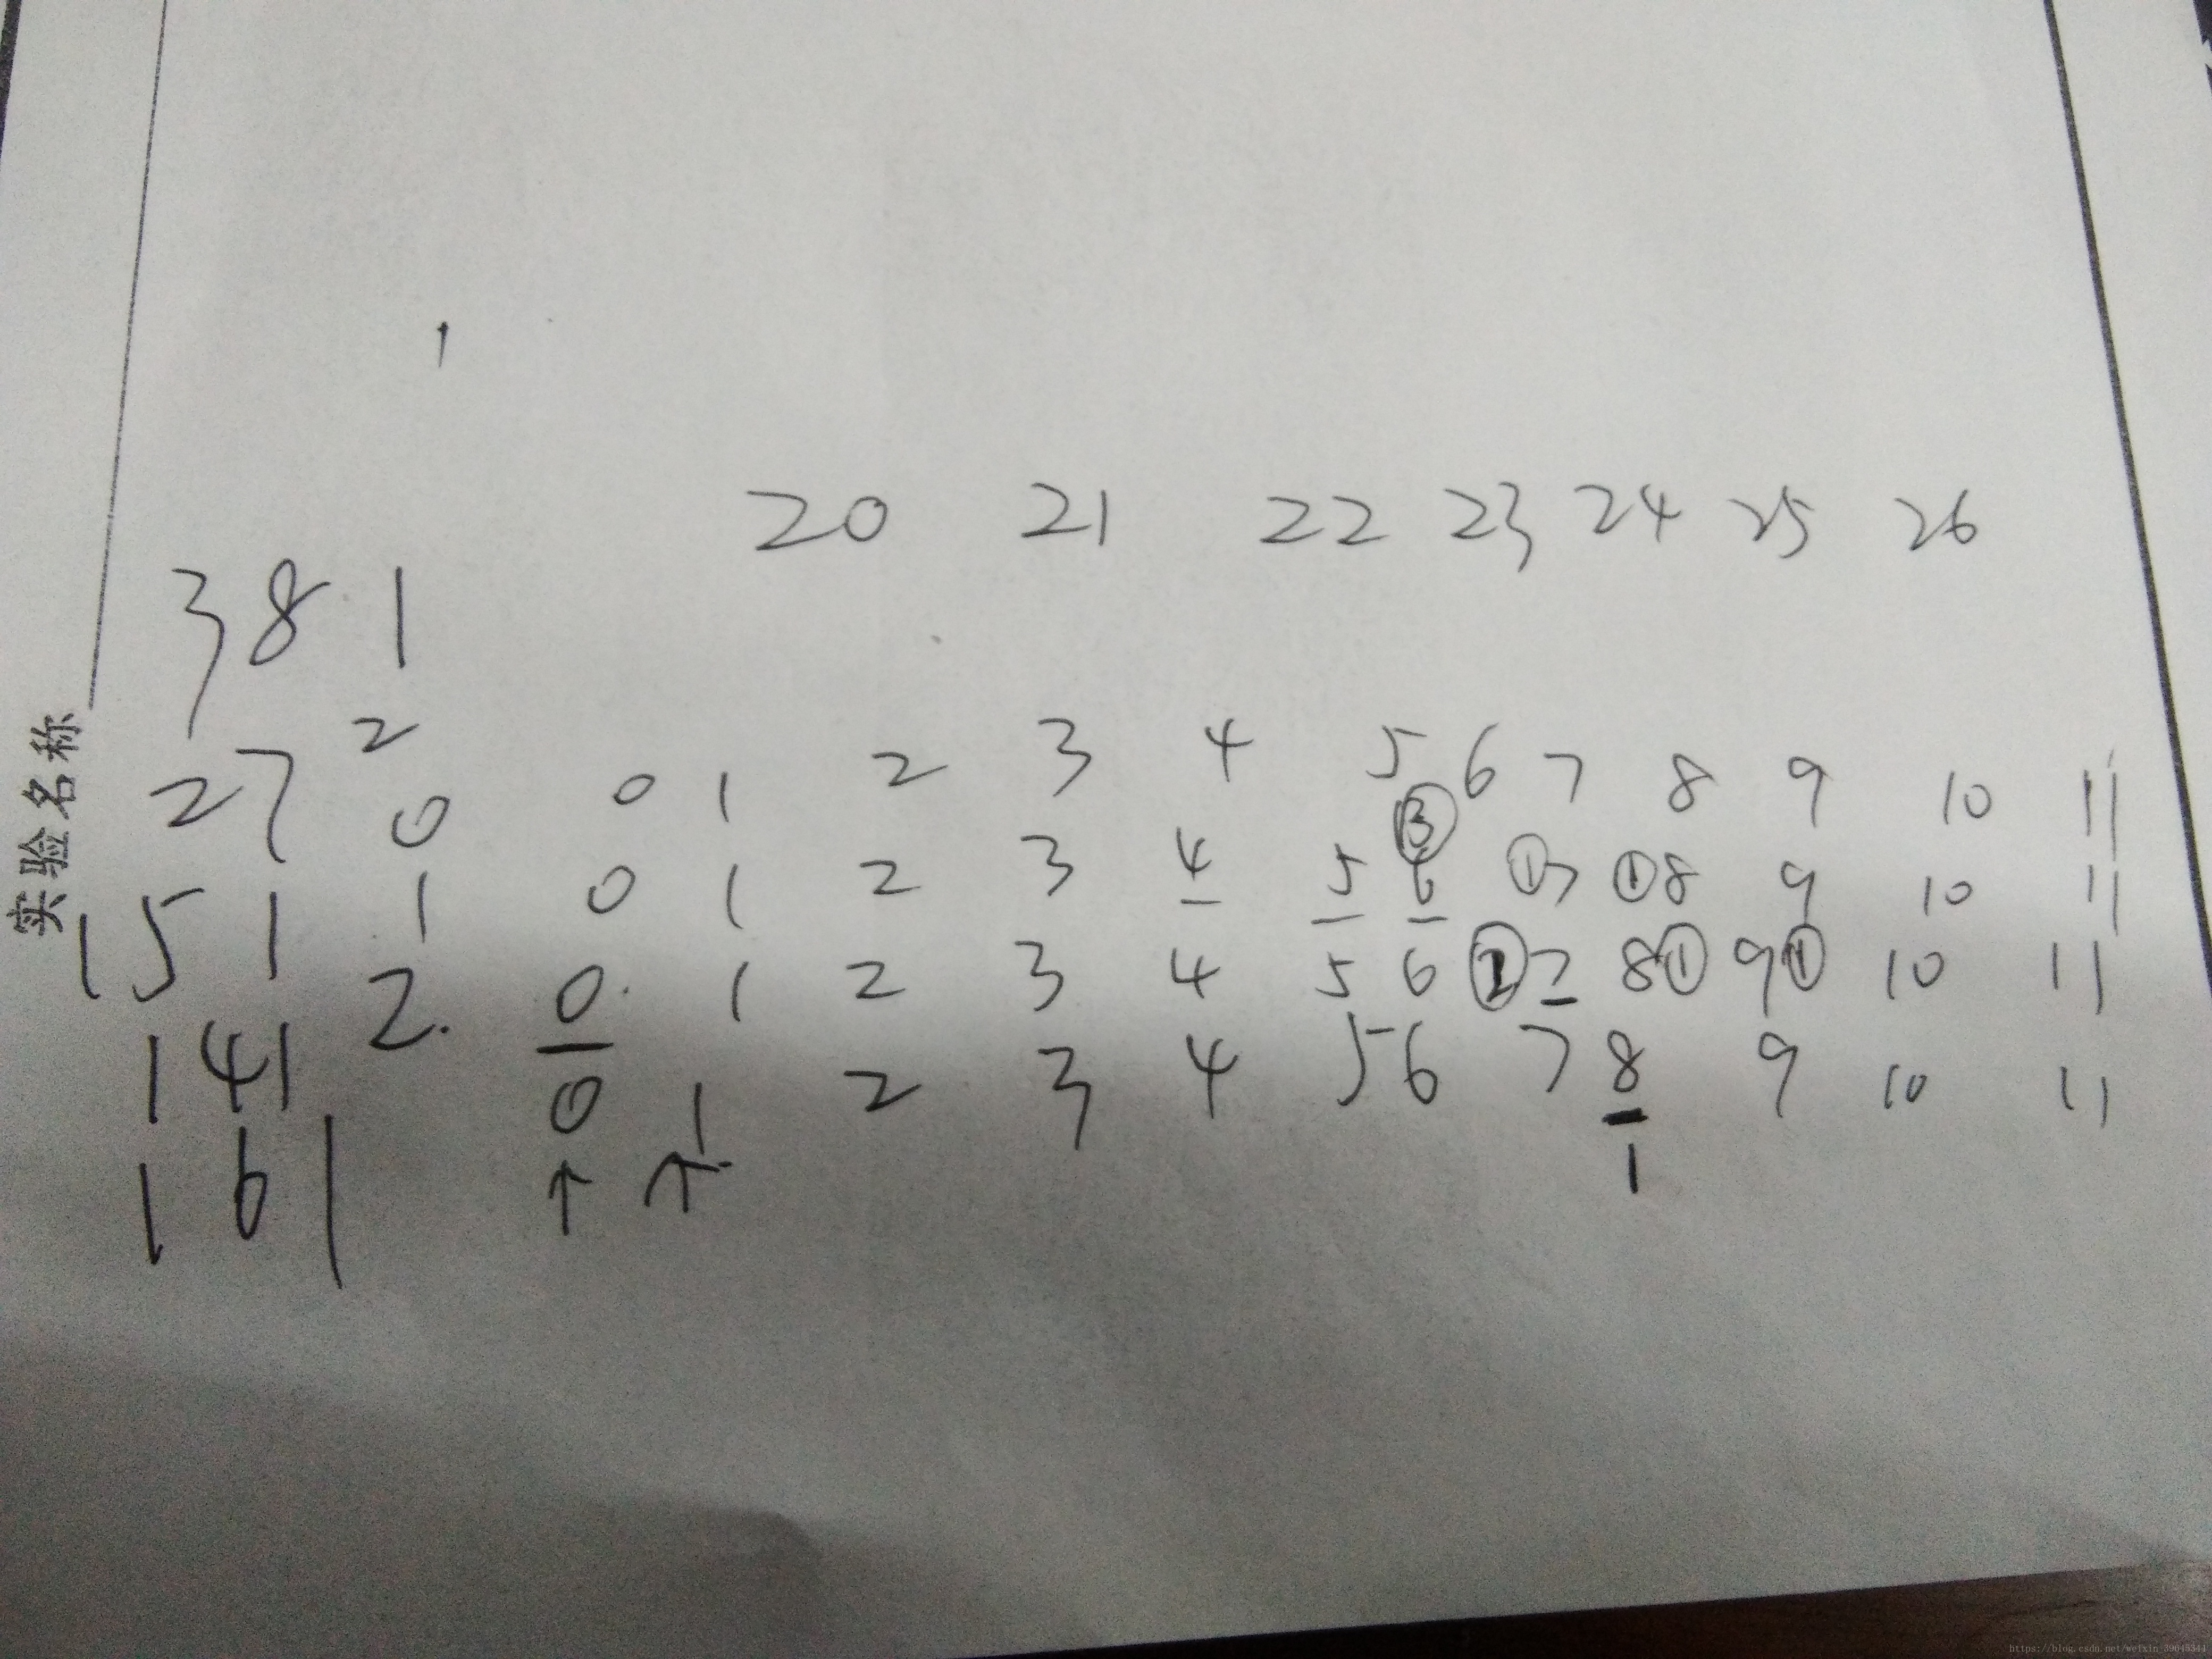 1
20 21 22 23 24 25 26
3 8 1
2
0 1 2 3 4 5 6 7 8 9 10 11
2 7 0
③
0 1 2 3 4 5 6 ①7 ①8 9 10 11
1 5 1 1
0. 1 2 3 4 5 6 ②7 8① 9① 10 11
1 4 1 2.
0 1 2 3 4 5 6 7 8 9 10 11
1 6 1 ↑ ↑ 1
实验名称
https://blog.csdn.net/weixin_39045344